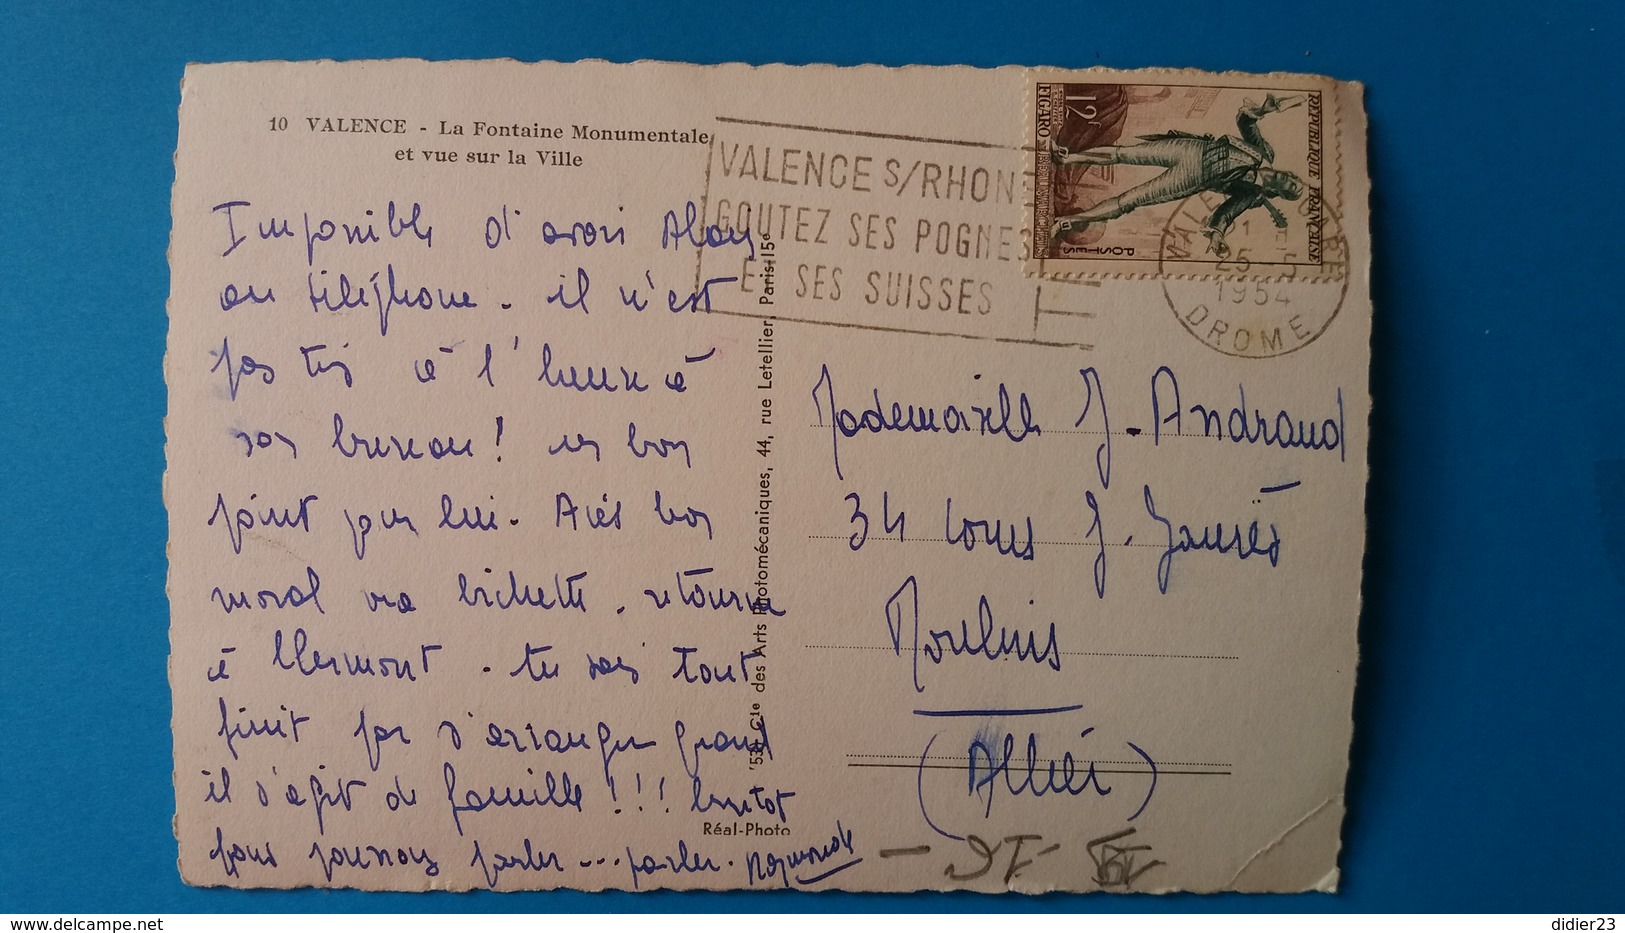 10 VALENCE - La Fontaine Monumentale
et vue sur la Ville
VALENCE S/RHONE
GOUTEZ SES POGNES
ET SES SUISSES
REPUBLIQUE FRANÇAISE
POSTES
12F
FIGARO
25
1954
DROME
Impossible d'avoir
au téléphone - il n'est
pas à l'heure à
son bureau ! un bon
point pour lui - bon
moral bichette - retourne
à Clermont - tu sais tout
finit par s'arranger quand
il s'agit de famille !!! bientot
parler ... parler. Raymonde
'53 - Cie des Arts Photomécaniques, 44, rue Letellier, Paris-15e
Réal-Photo
Mademoiselle J. Andraud
34 Cours J. Jaurès
Moulins
(Allier)
didier23